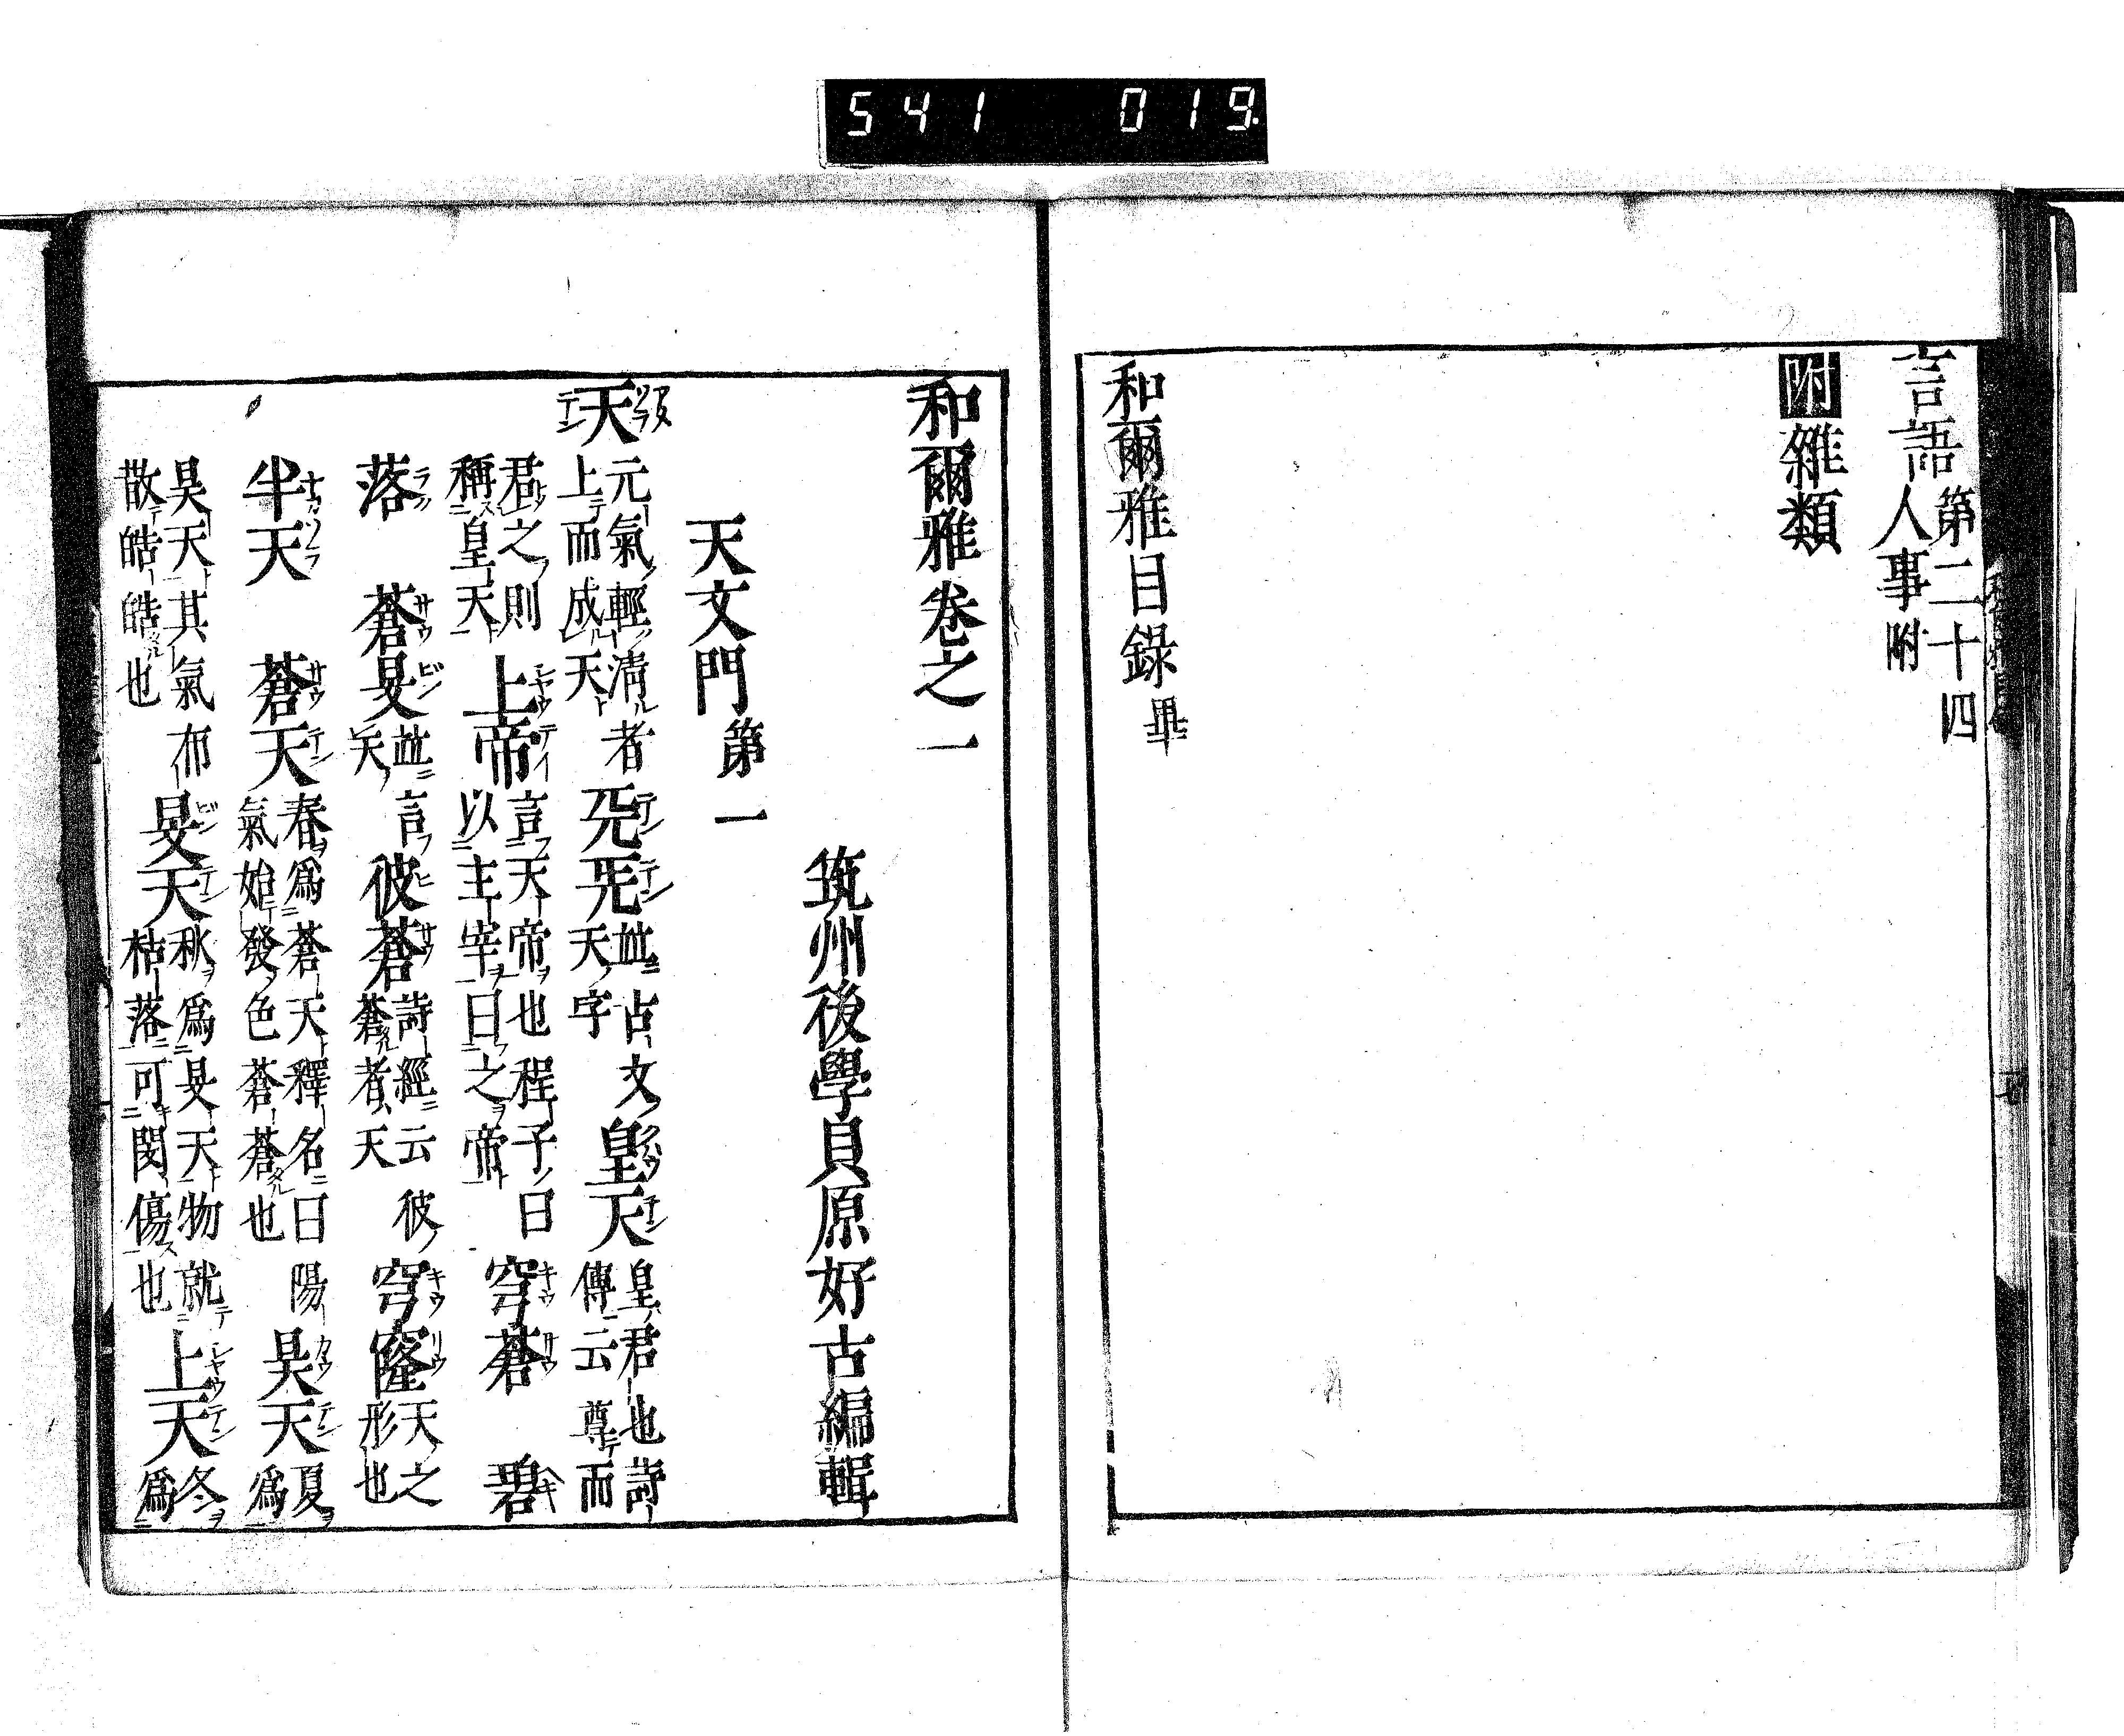 541 019
言語 第二十四 人事附
附 雜類
和爾雅目錄 畢
和爾雅卷之一
筑州後學貝原好古編輯
天文門 第一
天 元氣輕清者上而成天 兂 兲 並古文天字 皇天 皇君也詩傳云尊而
君之則稱皇天 上帝 言天帝也程子曰以主宰曰之帝 穹蒼 碧
落 蒼旻 並言天 彼蒼 詩經云彼蒼者天 穹窿 天之形也
半天 蒼天 春爲蒼天釋名曰陽氣始發色蒼蒼也 昊天 夏爲
昊天其氣布散皓皓也 旻天 秋爲旻天物就枯落可閔傷也 上天 冬爲